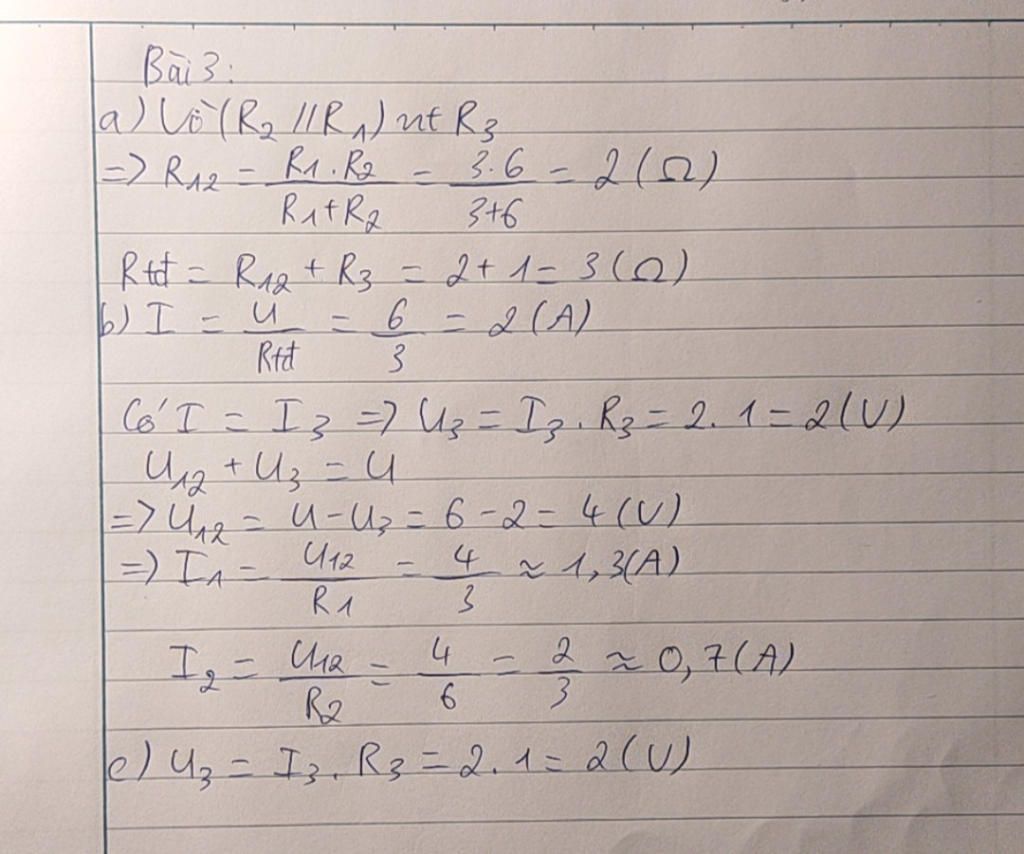 Bài 3:
a) Vì (R2 // R1) nt R3
=> R12 = R1.R2 / R1+R2 = 3.6 / 3+6 = 2 (Ω)
Rtđ = R12 + R3 = 2 + 1 = 3 (Ω)
b) I = U / Rtđ = 6 / 3 = 2 (A)
Có I = I3 => U3 = I3 . R3 = 2. 1 = 2 (V)
U12 + U3 = U
=> U12 = U - U3 = 6 - 2 = 4 (V)
=> I1 = U12 / R1 = 4 / 3 ≈ 1,3(A)
I2 = U12 / R2 = 4 / 6 = 2 / 3 ≈ 0,7 (A)
c) U3 = I3 . R3 = 2. 1 = 2 (V)